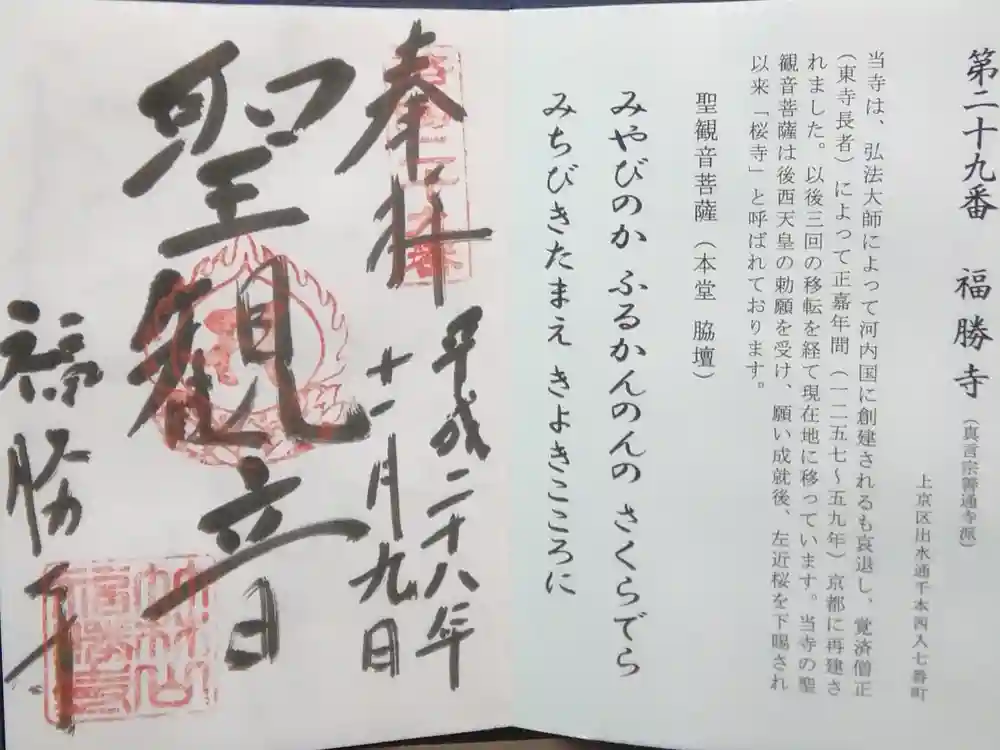 第二十九番 福勝寺（真言宗善通寺派）
上京区出水通千本西入七番町
当寺は、弘法大師によって河内国に創建されるも衰退し、覚済僧正
（東寺長者）によって正嘉年間（一二五七〜五九年）京都に再建さ
れました。以後三回の移転を経て現在地に移っています。当寺の聖
観音菩薩は後西天皇の勅願を受け、願い成就後、左近桜を下賜され
以来「桜寺」と呼ばれております。
聖観音菩薩（本堂 脇壇）
みやびのか ふるかんのんの さくらでら
みちびきたまえ きよきこころに
奉拝
平成二十八年
十一月九日
聖観音
福勝寺
竹林山
福勝寺